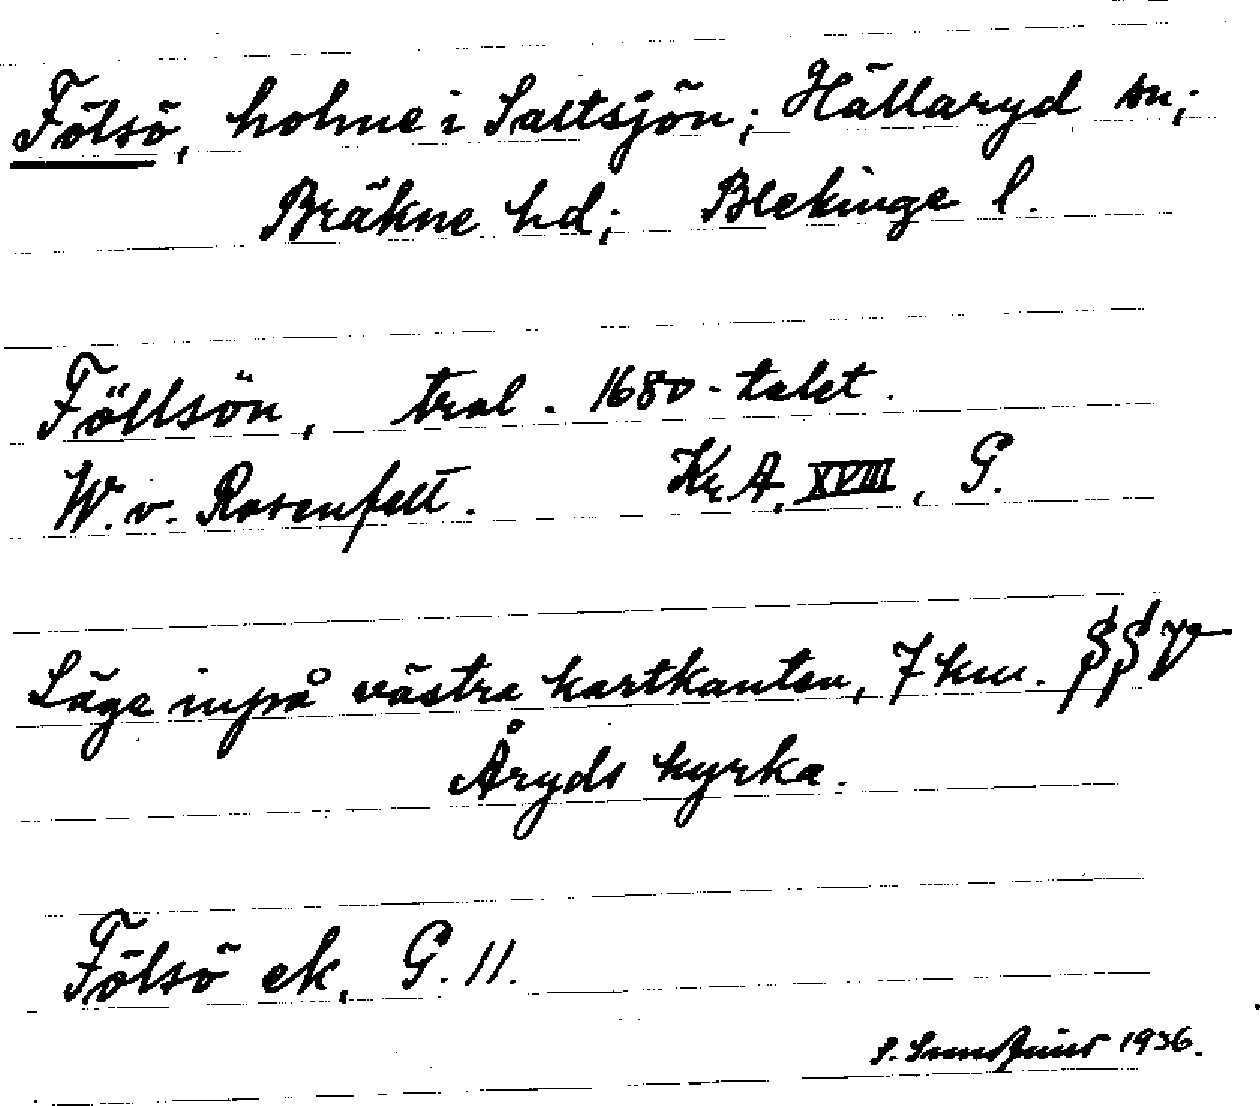 Fölsö, holme i Saltsjön; Hällaryd sn;
Bräkne hd; Blekinge l.
Föllsön, tral. 1680-talet.
W. v. Rosenfelt. Kr.A. XVIII, G.
Läge inpå västra kartkanten, 7 km. SSV
Åryds kyrka.
Fölsö ek, G. 11.
1936.